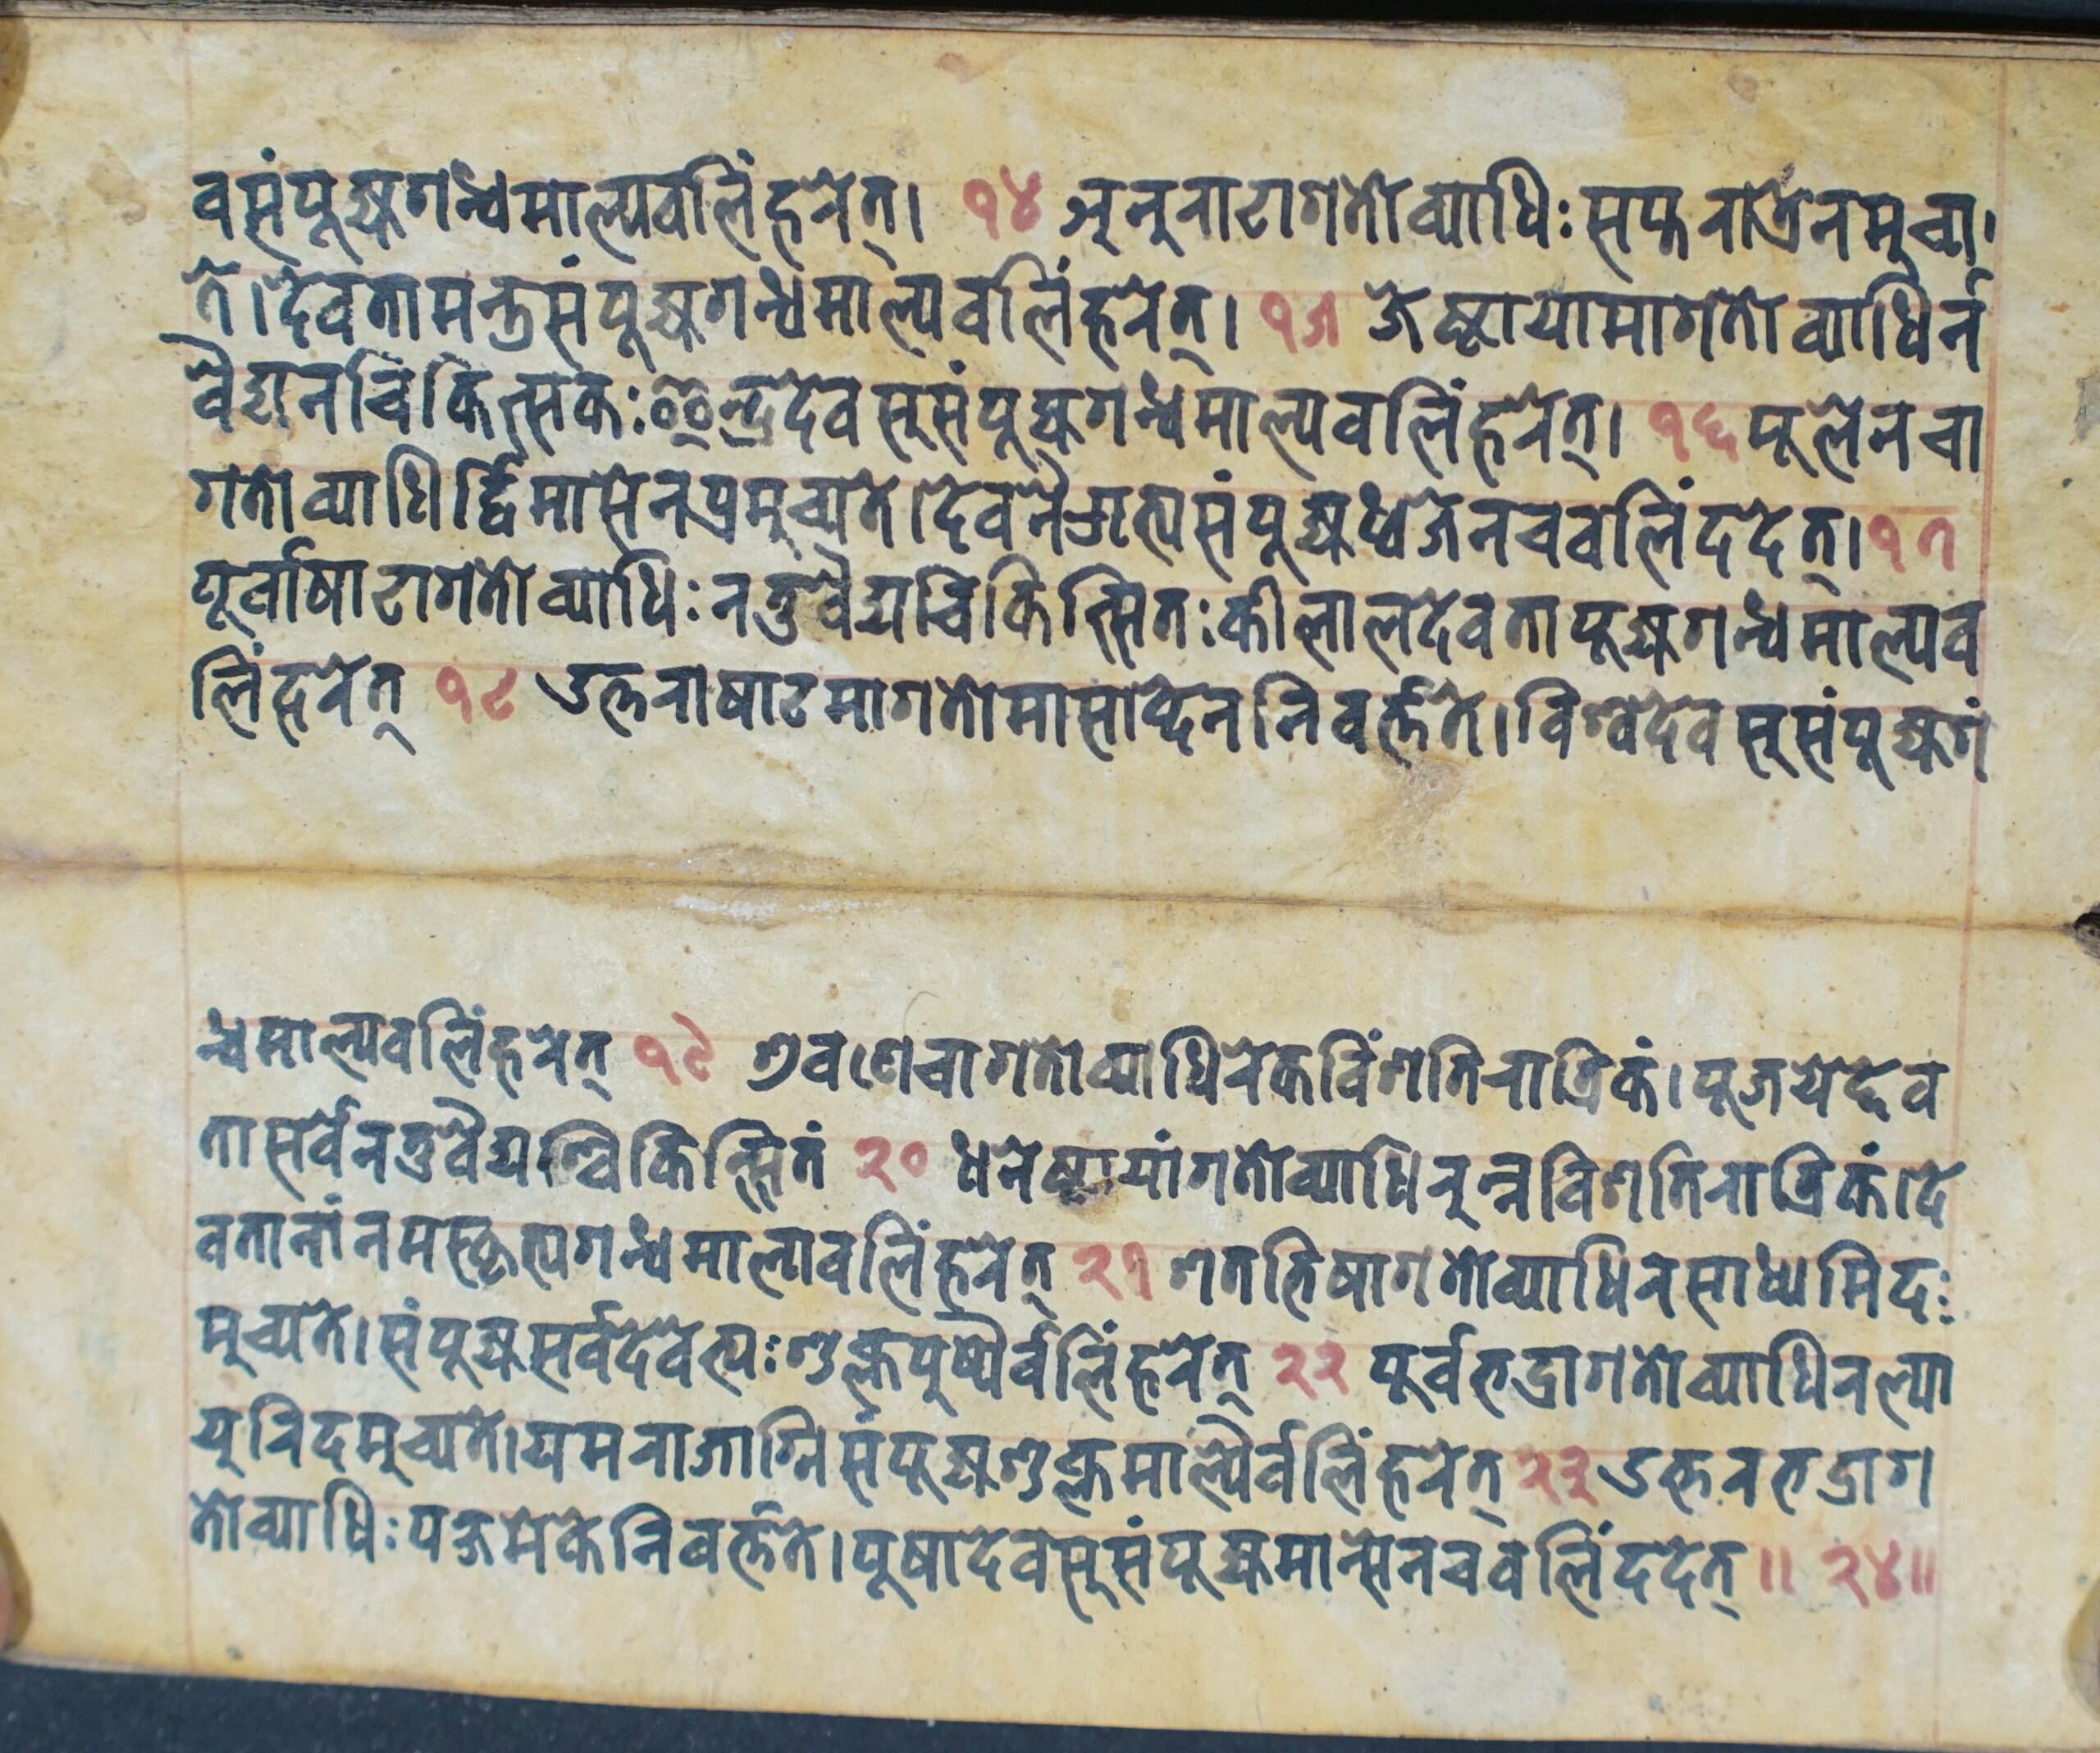 वसंपूज्यगन्धमाल्यवलिंहरेत्। १४ अनुराढागतोव्याधिः सप्तरात्रेनमुच्य
ते। देवतामन्त्रसंपूज्यगन्धमाल्यवलिंहरेत्। १५ जेष्ठायामागतोव्याधिर्न
वैद्यनचिकित्सकः इन्द्रदेवसुसंपूज्यगन्धमाल्यवलिंहरेत्। १६ मूलेनचा
गतोव्याधिर्द्विमासेनप्रमुच्यते। देवनैऋत्यसंपूज्यध्वजेनचवलिंददेत्। १७
पूर्वाषाढागतोव्याधिः नतुवैद्यचिकित्सितः कीलालदेवतापूज्यगन्धमाल्यव
लिंहरेत् १८ उत्तराषाढमागतोमासार्द्धेननिवर्त्तते। विश्वदेवसुसंपूज्यगं
न्धमाल्यवलिंहरेत् १९ श्रवणेचागतोव्याधिरेकविंशतिरात्रिकं। पूजयेद्देव
तासर्वेनतुवैद्यश्चिकित्सितं २० धनेष्ठायांगतोव्याधिरुन्नविशतिरात्रिकं। दे
वतानांनमस्कृत्यगन्धमाल्यवलिंहरेत् २१ शतभिषागतोव्याधिनसाध्यमिदः
मुच्यते। संपूज्यसर्वदेवेभ्यः शुक्लपुष्पैर्वलिंहरेत् २२ पूर्वभद्रागतोव्याधिरल्पा
युरिदमुच्यते। यमराजाग्निसंपूज्यशुक्लमाल्यैर्वलिंहरेत् २३ उत्तरभद्राग
तोव्याधिः पक्षमेकेनिवर्त्तते। पूषादेवसुसंपूज्यमान्सेनचवलिंददेत् ॥ २४ ॥